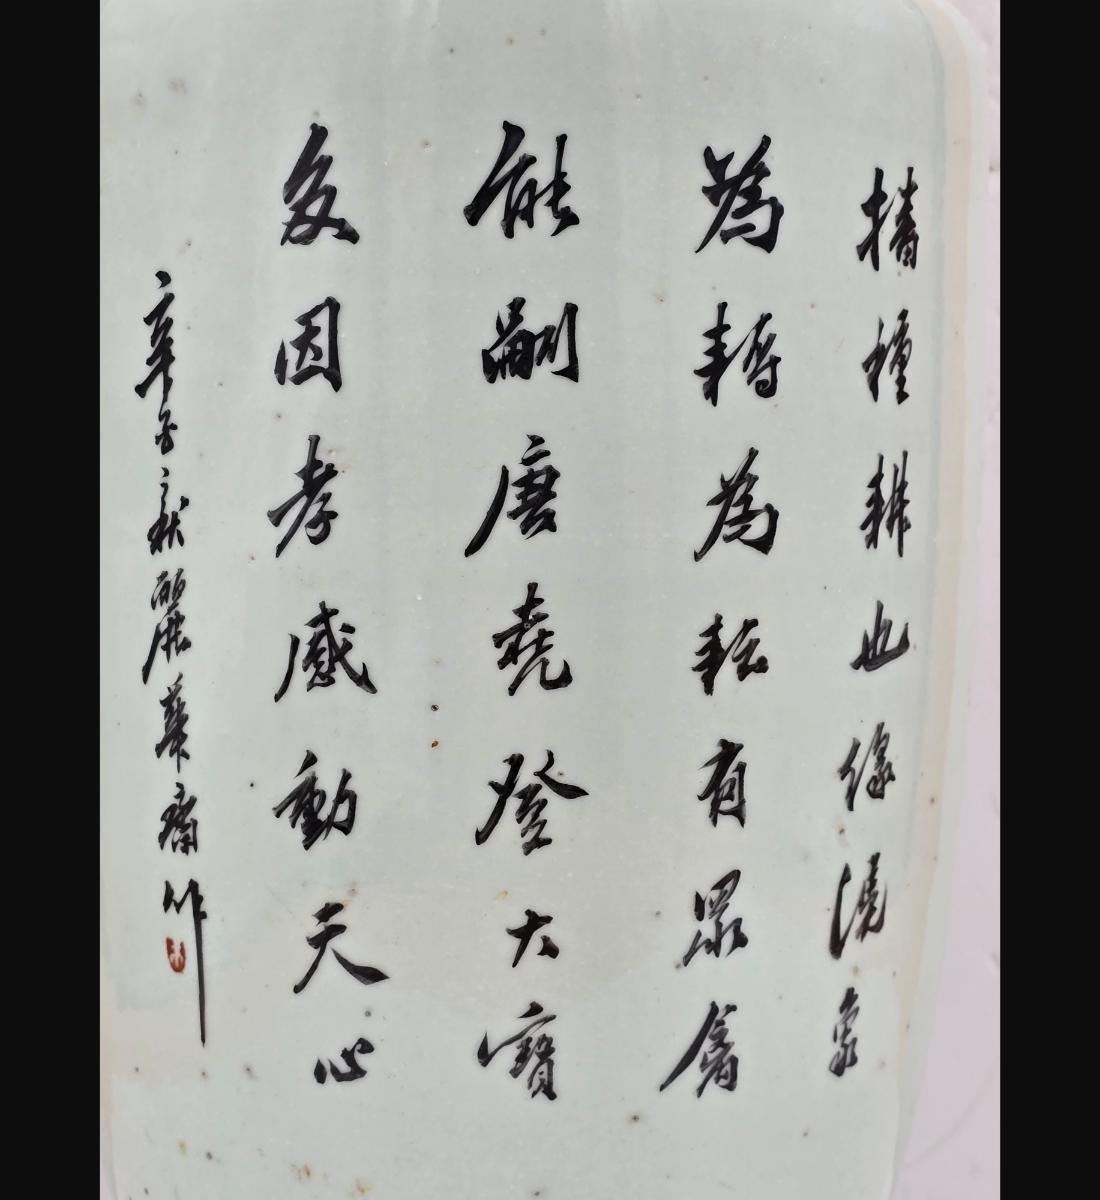 播種耕也緣澆象
為耨為耘有眾禽
能嗣唐堯登大寶
多因孝感動天心
辛 秋麗華齋作